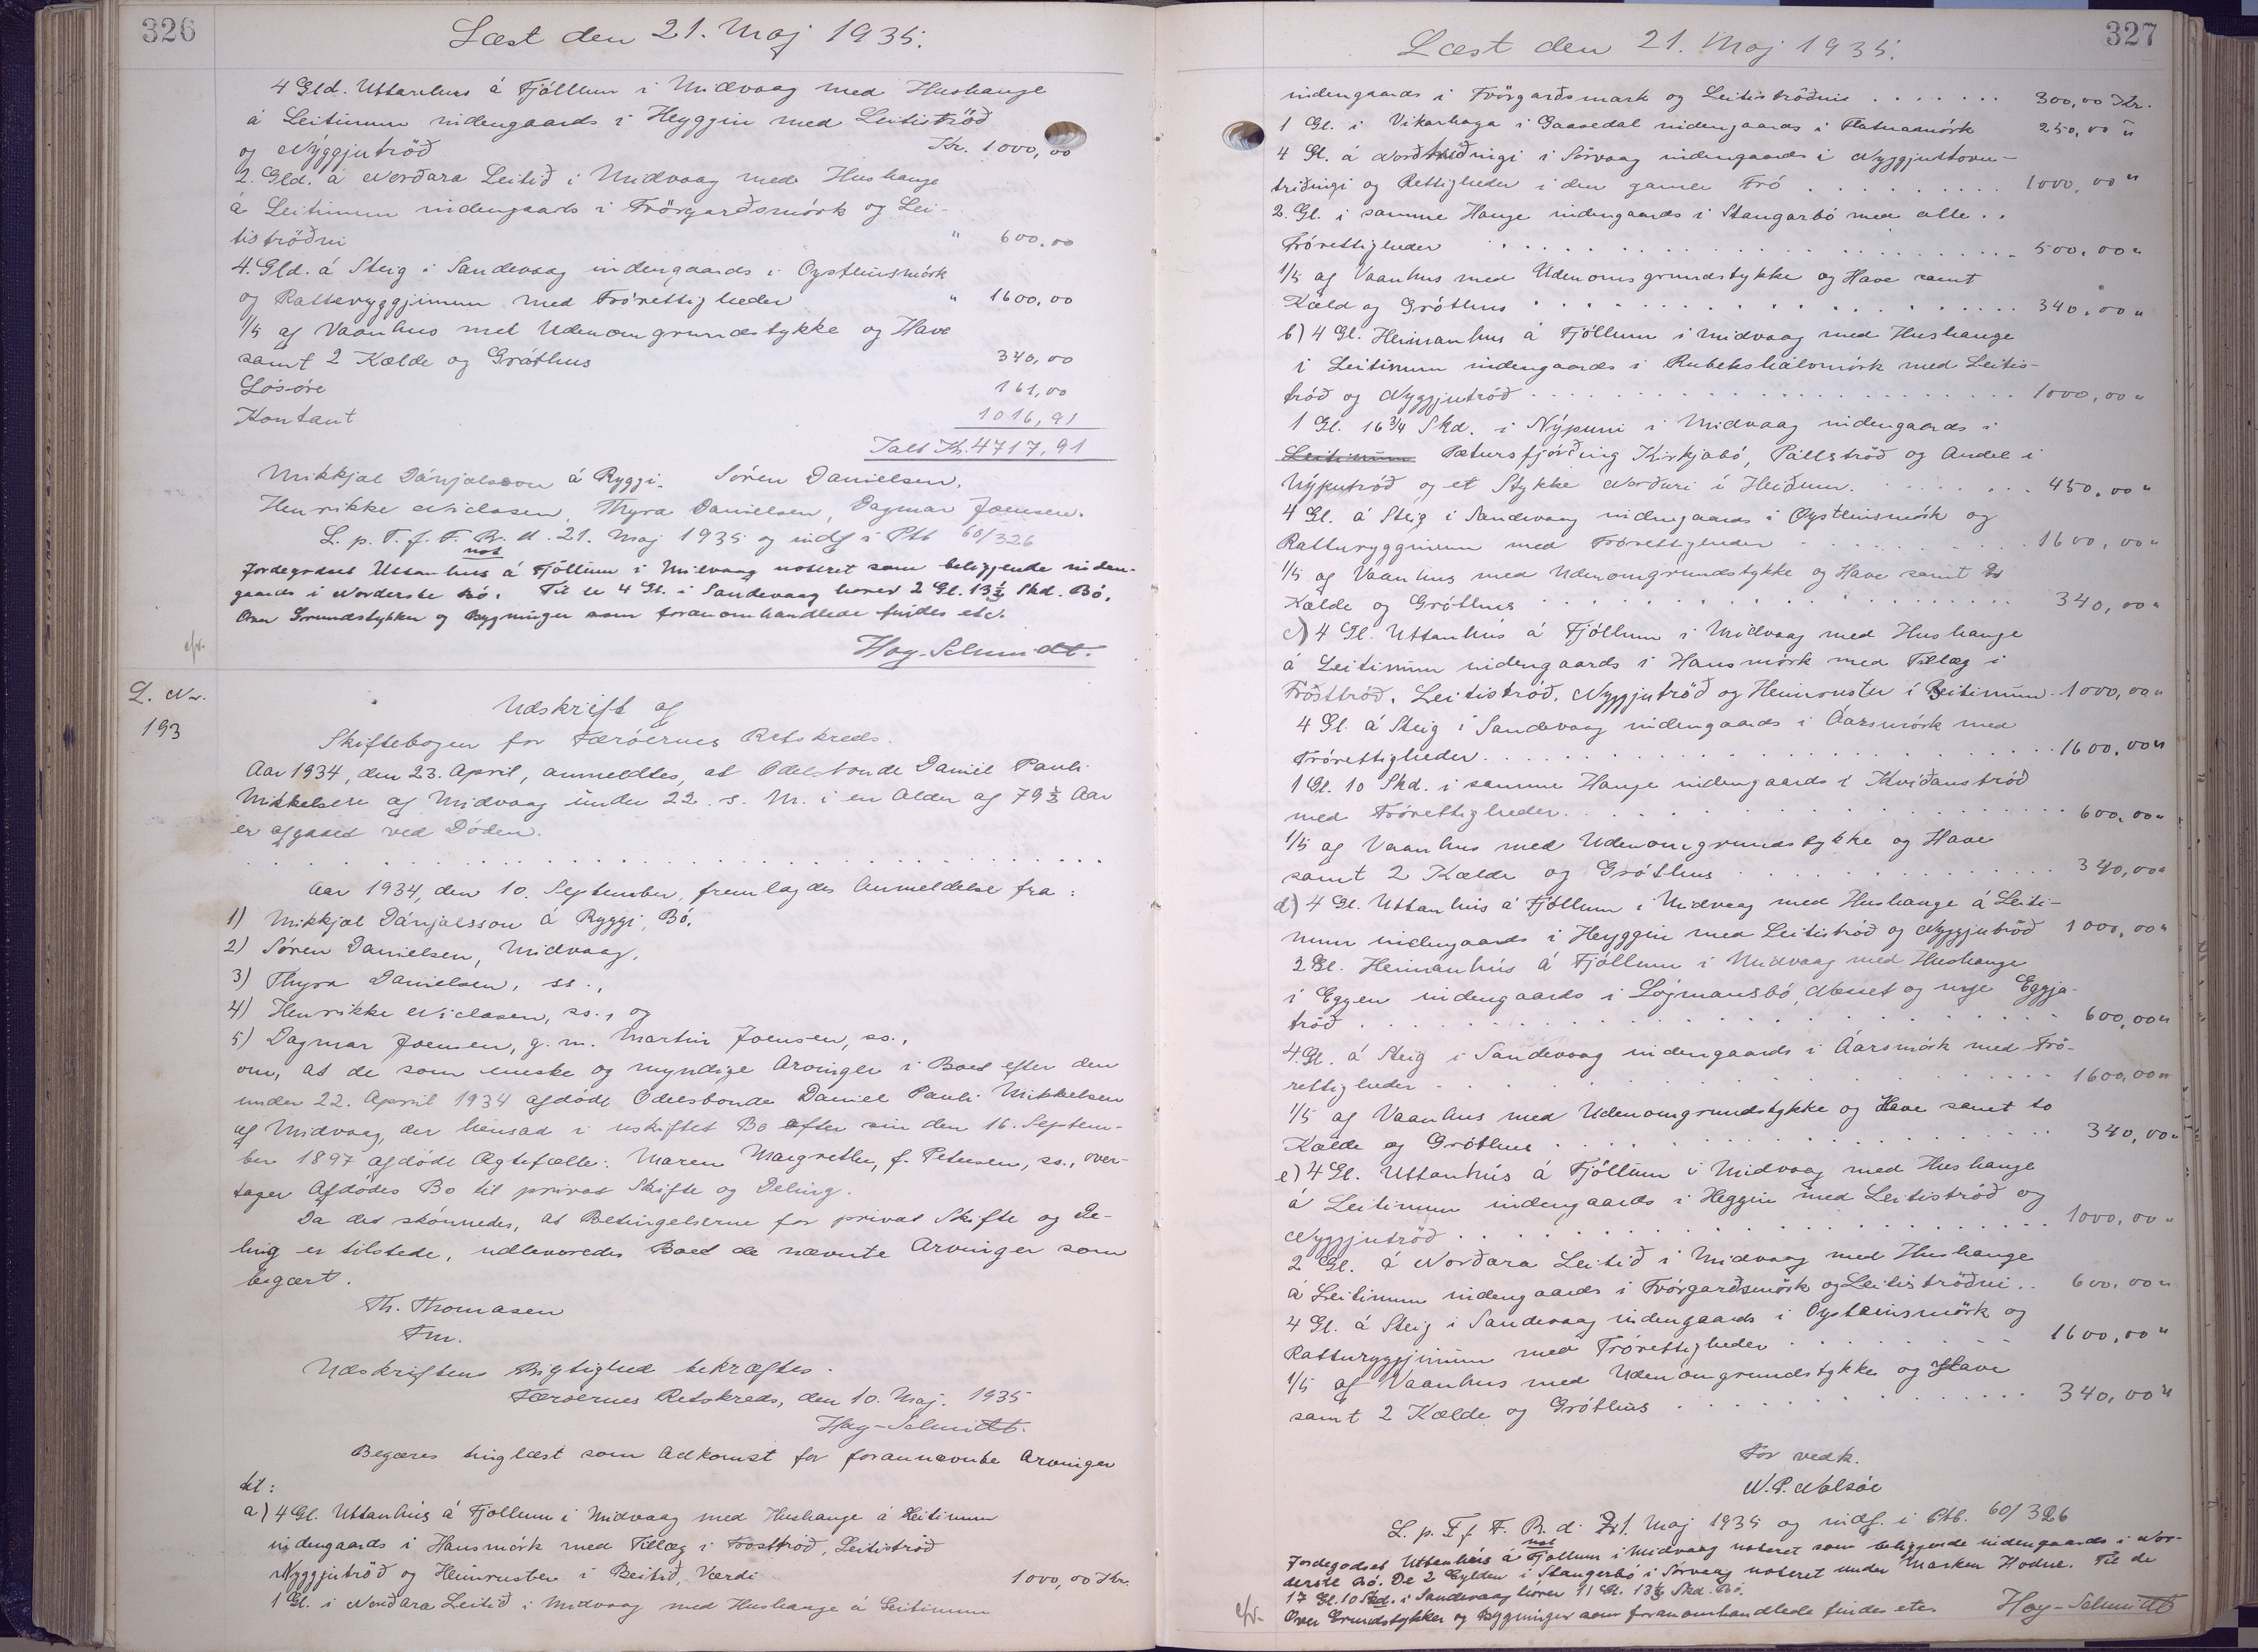 326
Læst den 21. Maj 1935.
4 Gld. Uttanhus á Fjøllum i Midvaag med Hushauge
á Leitinum indengaards i Heyggin med Leitistrøð
og Nýggjutrøð Kr. 1000,00
2. Gld. á Norðara Leitið i Midvaag med Hushauge
á Leitinum indengaards i Frørgarðsmørk og Lei-
tistrøðni " 600,00
4. Gld. á Steig i Sandevaag indengaards i Oysteinsmørk
og Rattaryggjinum med Trórettigheder " 1600,00
1/5 af Vaanhus met Udenomgrundstykke og Have
samt 2 Kælde og Gróthus 340,00
Løsøre 161,00
Kontant 1016,91
Ialt Kr. 4717,91
Mikkjal Dánjalsson á Ryggi. Søren Danielsen.
Henrikke Niclasen, Thyra Danielsen, Dagmar Joensen.
L. p. T. f. F. R. d. 21. Maj 1935 og indf i Ptb 60/326
not
Jordegodset Uttanhus á Fjøllum i Midvaag noteret som beliggende inden-
gaards i Norderste Bó. Til de 4 Gl. i Sandevaag hører 2 Gl. 13 1/3 Skd. Bó.
Over Grundstykker og Bygninger som foranomhandlede findes etc.
Hoy-Schmidt.
L. Nr.
193
Udskrift af
Skiftebogen for Færøernes Retskreds.
Aar 1934, den 23. April, anmeldtes, at Odelsbonde Daniel Pauli
Mikkelsen af Midvaag under 22. s. M. i en Alder af 79 1/2 Aar
er afgaaet ved Døden.
Aar 1934, den 10. September, fremlagdes Anmeldelse fra:
1) Mikkjal Dánjalsson á Ryggi, Bó.
2) Søren Danielsen, Midvaag,
3) Thyra Danielsen, ss.,
4) Henrikke Niclasen, ss., og
5) Dagmar Joensen, g. m. Martin Joensen, ss.,
om, at de som eneste og myndige Arvinger i Boet efter den
under 22. April 1934 afdøde Odelsbonde Daniel Pauli Mikkelsen
af Midvaag, der hensad i uskiftet Bo efter sin den 16. Septem-
ber 1897 afdøde Ægtefælle: Maren Margrethe, f. Petersen, ss., over-
tager Afdødes Bo til privat Skifte og Deling.
Da det skønnedes, at Betingelserne for privat Skifte og De-
ling er tilstede, udleveredes Boet de nævnte Arvinger som
begært.
Th. Thomasen
Fm.
Udskriftens Rigtighed bekræftes.
Færøernes Retskreds, den 10. Maj. 1935
Hoy-Schmidt.
Begæres tinglæst som Adkomst for forannævnte Arvinger
til:
a) 4 Gl. Uttanhús á Fjøllum i Midvaag med Hushauge á Leitinum
indengaards i Hansmørk med Tillæg i Frosttrøð, Leitistrøð
Nyggjutrøð og Heimruster i Beitið, Værdi 1000,00 Kr.
1 Gl. i Norðara Leitið i Midvaag med Hushauge á Leitinum
327
Læst den 21. Maj 1935.
indengaards i Frørgarðsmark og Leitistrøðni 300,00 Kr.
1 Gl. i Vikarhaga i Gaasedal indengaards i Flatnamørk 250,00 "
4 Gl. á Norðtriðingi i Sørvaag indengaards i Nyggjustovu-
triðingi og Rettigheder i den gamle Tró 1000,00 "
2. Gl. i samme Hauge indengaards i Stangarbó med alle
Trórettigheder 500,00 "
1/5 af Vaanhus med Udenomsgrundstykke og Have samt
Kæld og Gróthus 340,00 "
b) 4 Gl. Heimanhus á Fjøllum i Midvaag med Hushauge
i Leitinum indengaards i Rubekshálvmørk med Leitis-
trøð og Nyggjutrøð 1000,00 "
1 Gl. 16 3/4 Skd. i Nýpuni i Midvaag indengaards i
Leitinum Pætursfjørðing Kirkjabø, Pállstrøð og Andel i
Nyputrøð og et Stykke Norðuri í Heiðum. 450,00 "
4 Gl. á Steig i Sandevaag indengaards i Oysteinsmørk og
Ratturyggjinum med Trórettigheder 1600,00 "
1/5 af Vaanhus med Udenomgrundstykke og Have samt to
Kælde og Gróthus 340,00 "
c) 4 Gl. Uttanhús á Fjøllum i Midvaag med Hushauge
á Leitinum indengaards i Hansmørk med Tillæg i
Frosttrøð, Leitistrøð, Nyggjutrøð og Heimruster i Beitinum 1000,00 "
4 Gl. á Steig i Sandevaag indengaards i Áarsmørk med
Trórettigheder 1600,00 "
1 Gl. 10 Skd. i samme Hauge indengaards i Kviðanstrøð
med Trórettigheder 600,00 "
1/5 af Vaanhus med Udenomgrundstykke og Have
samt 2 Kælde og Gróthus 340,00 "
d) 4 Gl. Uttanhús á Fjøllum i Midvaag med Hushauge á Leiti-
num indengaards i Heyggin med Leitistrøð og Nyggjutrøð 1000,00 "
2 Gl. Heimanhús á Fjøllum i Midvaag med Hushauge
i Eggen indengaards i Løgmansbó, Nesset og nye Eggja-
trøð 600,00 "
4. Gl. á Steig i Sandevaag indengaards i Áarsmørk med Tró-
rettigheder 1600,00 "
1/5 af Vaanhus med Udenomgrundstykke og Have samt to
Kælde og Gróthus 340,00 "
e) 4 Gl. Uttanhús á Fjøllum i Midvaag med Hushauge
á Leitinum indengaards i Heggin med Leitistrøð og
Nyggjutrøð 1000,00 "
2 Gl. á Norðara Leitið i Midvaag med Hushauge
á Leitinum indengaards i Frórgarðsmørk og Leitistrøðni 600,00 "
4 Gl. á Steig i Sandevaag indengaards i Oysteinsmørk og
Ratturyggjinum med Trórettigheder 1600,00 "
1/5 af Vaanhus med Udenomgrundstykke og Have
samt 2 Kælde og Gróthus 340,00 "
For vedk.
N. P. Nolsøe
L. p. T. f. F. R. d. 21. Maj 1935 og indf. i Ptb. 60/326
not
Jordegodset Uttanhús á Fjøllum i Midvaag noteret som beliggende indengaards i Nor-
derste Bó. De 2 Gylden i Stangerbó i Sørvaag noteret under Marken Hodne. Til de
17 Gl. 10 Skd. i Sandevaag hører 11 Gl. 13 1/3 Skd. Bó.
Over Grundstykker og Bygninger som foranomhandlede findes etc.
Hoy-Schmidt